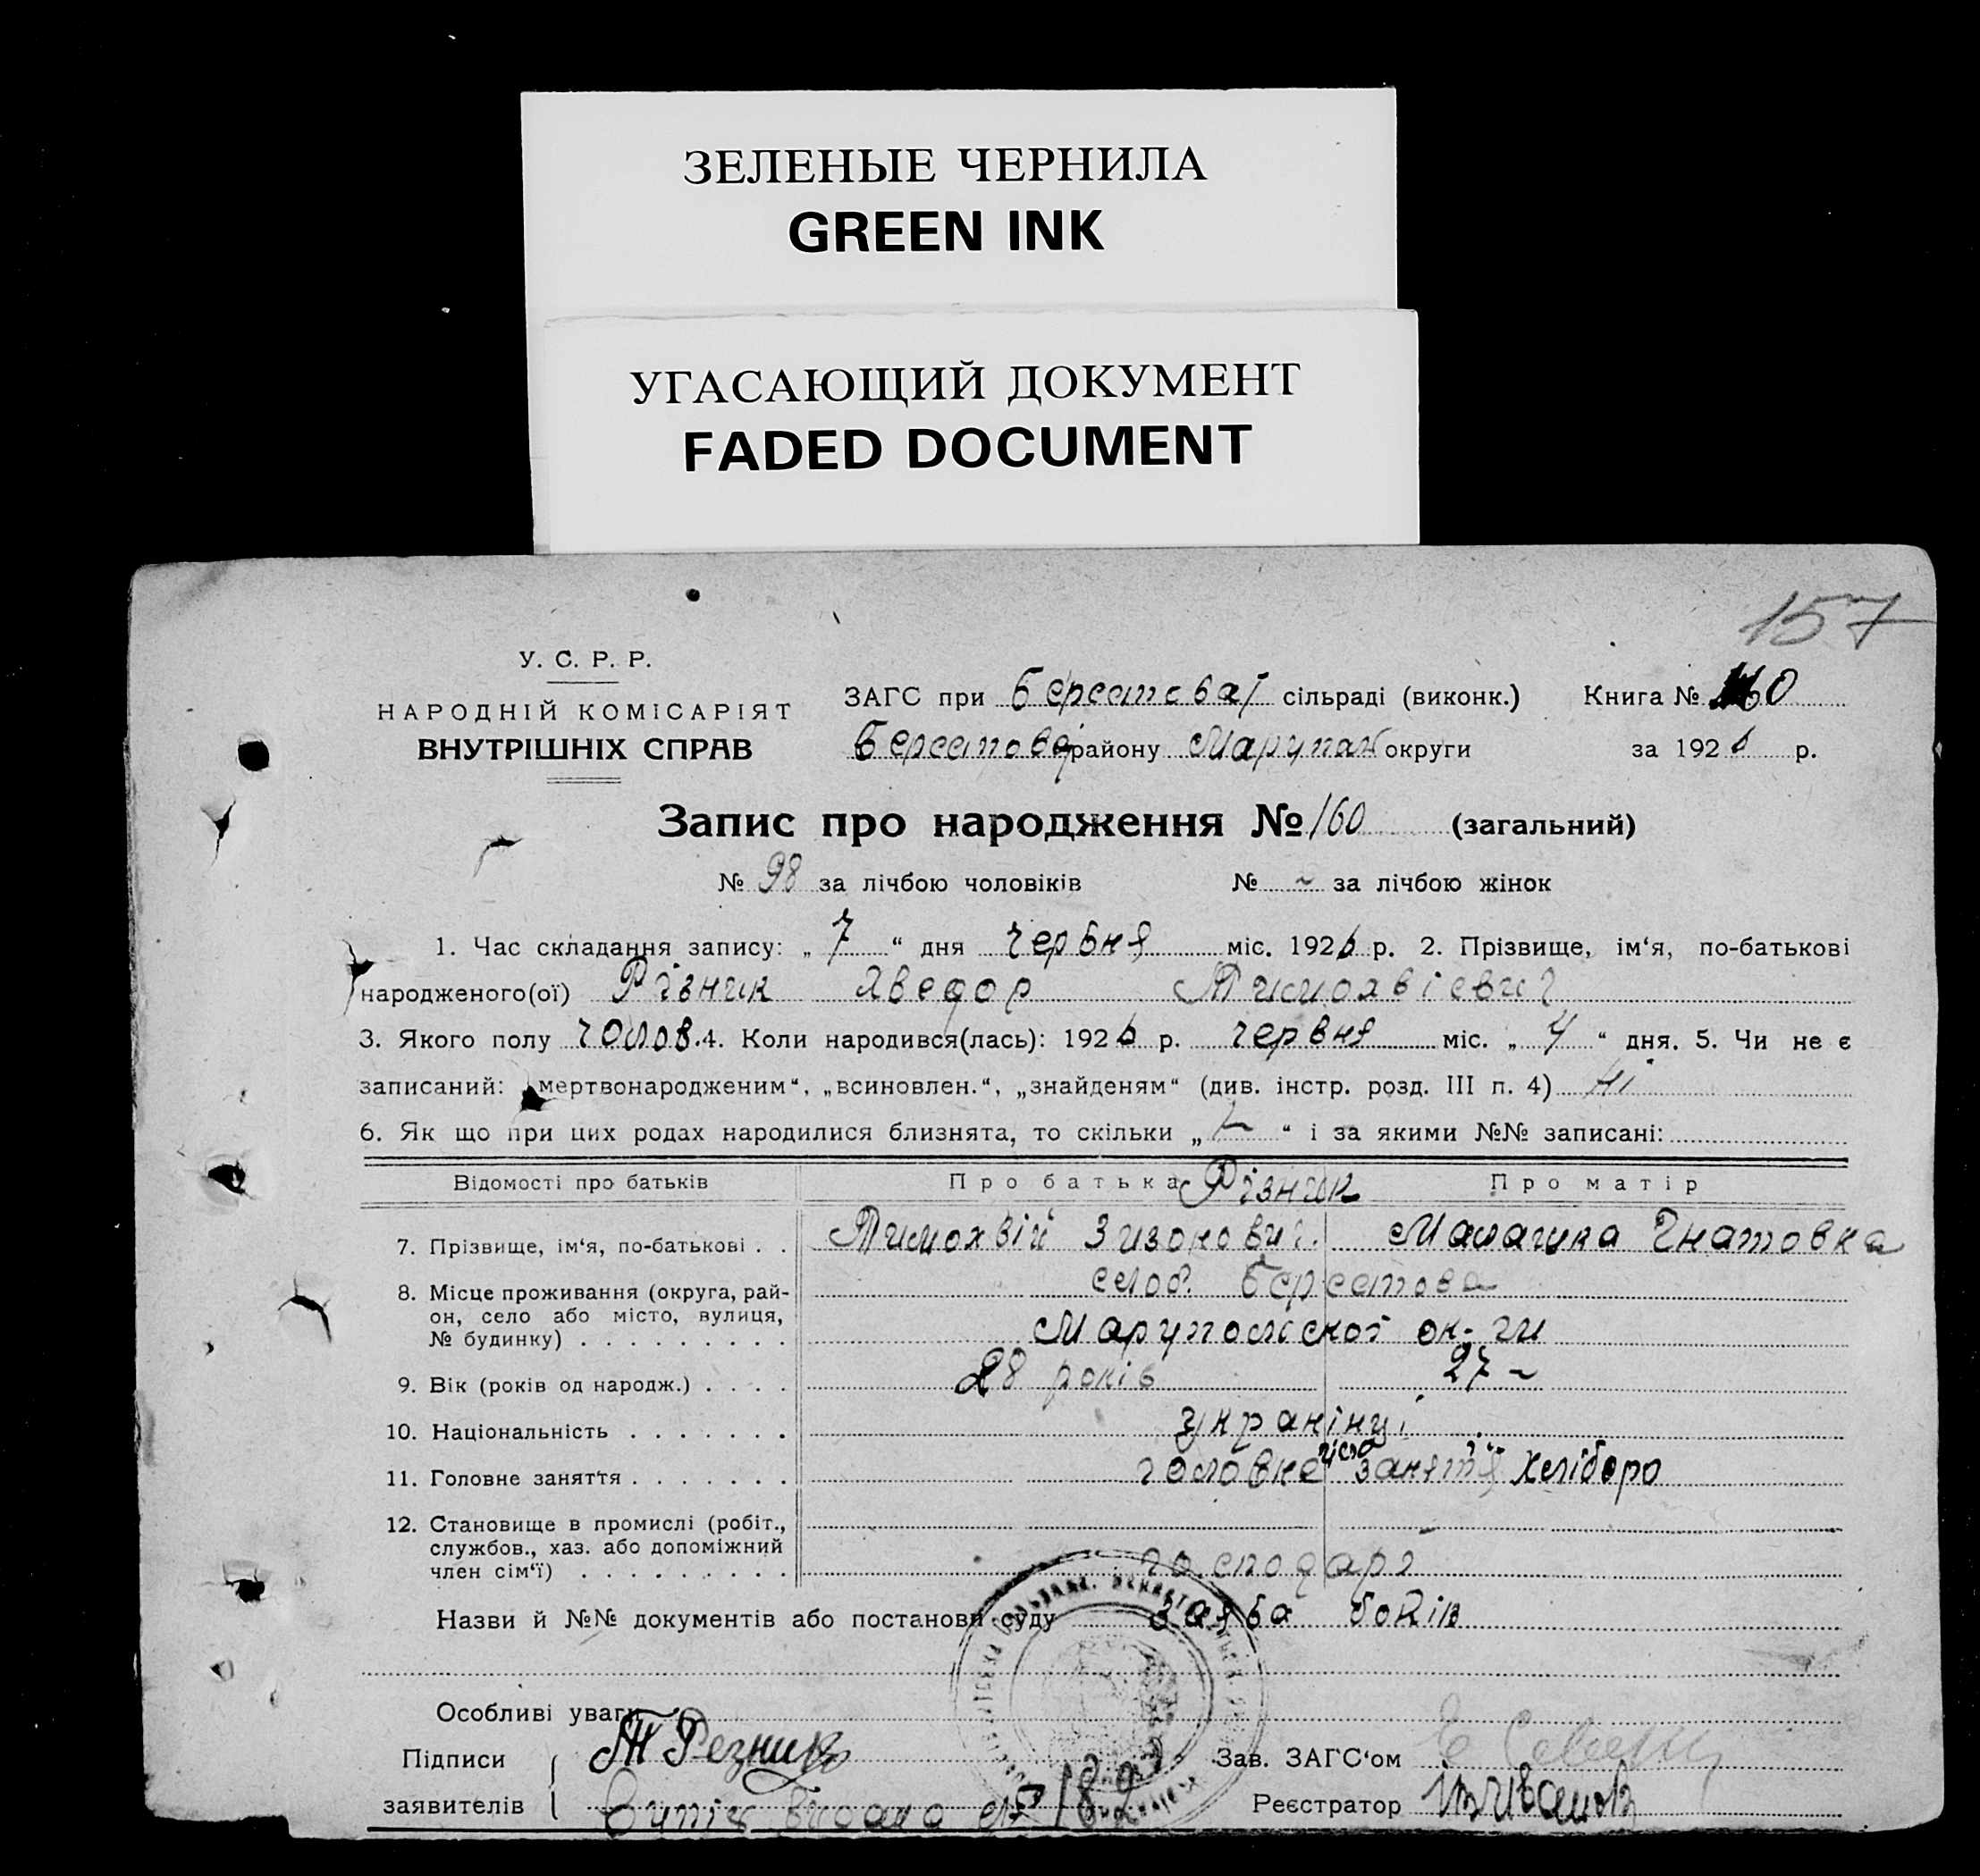 ЗЕЛЕНЫЕ ЧЕРНИЛА
GREEN INK
УГАСАЮЩИЙ ДОКУМЕНТ
FADED DOCUMENT
157
У. С. Р. Р.
НАРОДНІЙ КОМІСАРІЯТ
ВНУТРІШНІХ СПРАВ
ЗАГС при Берестоваї сільраді (виконк.) Книга № 160
Берестова району Марупал округи за 1926 р.
Запис про народження № 160 (загальний)
№ 98 за лічбою чоловіків № ~ за лічбою жінок
1. Час складання запису: „ 7 “ дня червня міс. 1926 р. 2. Прізвище, ім‘я, по-батькові
народженого(ої) Різник Хведор Тимохвієвич
3. Якого полу чолов. 4. Коли народився(лась): 1926 р. червня міс. „ 4 “ дня. 5. Чи не є
записаний: „мертвонародженим“, „всиновлен.“, „знайденям“ (див. інстр. розд. III п. 4) ні
6. Як що при цих родах народилися близнята, то скільки „ “ і за якими №№ записані:
Відомості про батьків Про батька Різник Про матір
7. Прізвище, ім‘я, по-батькові . . Тимохвій Зизонович. Малашка Гнатовка
8. Місце проживання (округа, рай-
он, село або місто, вулиця,
№ будинку) . . . . . . . . .
селоб. Берестова
Марупольскої ок-ги
9. Вік (років од народж.) . . . . 28 років 27 ~
10. Національність . . . . . . . украінці
11. Головне заняття . . . . . . . головне заняття хліборо
12. Становище в промислі (робіт.,
службов., хаз. або допоміжний
член сім‘ї) . . . . . . . . .
господарі
Назви й №№ документів або постанови суду заява
Особливі уваги
Підписи
заявителів
Т Резник
Зав. ЗАГС‘ом
Реєстратор Іванов
182